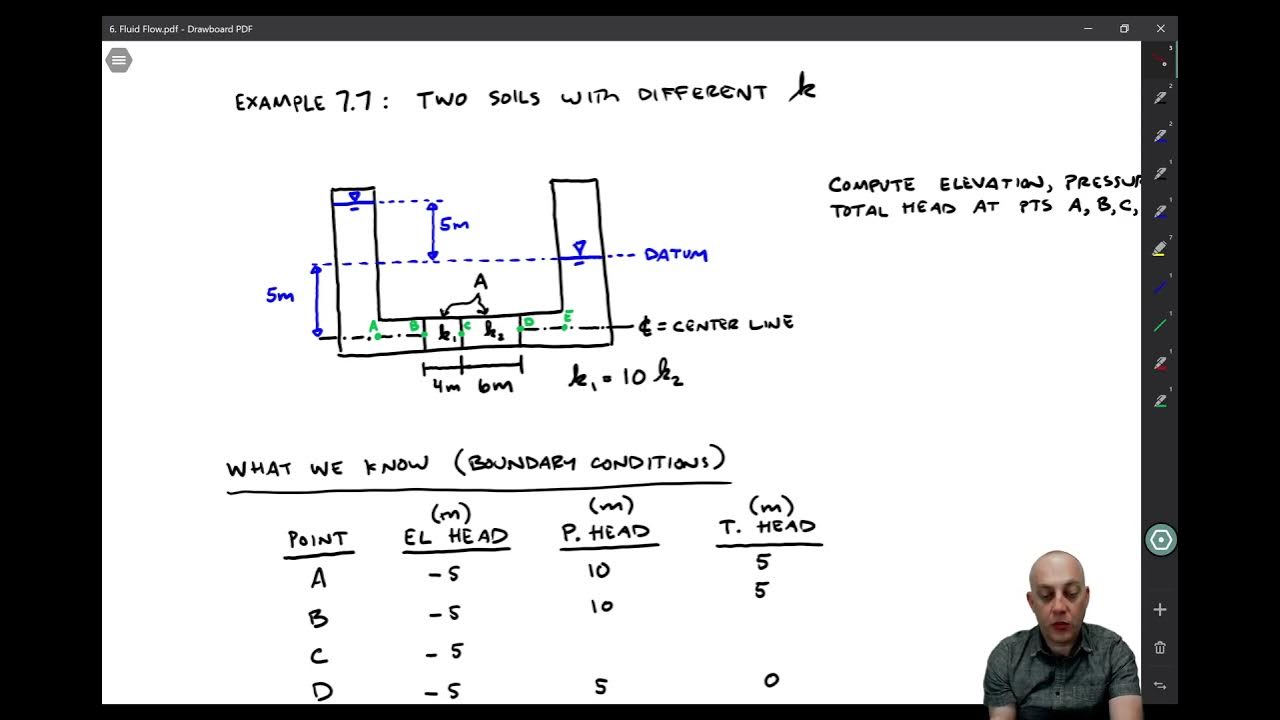 6. Fluid Flow.pdf - Drawboard PDF
EXAMPLE 7.7: TWO SOILS WITH DIFFERENT k
COMPUTE ELEVATION, PRESSUR
TOTAL HEAD AT PTS A, B, C,
5m
DATUM
5m
A
A B k₁ C k₂ D E
℄ = CENTER LINE
4m 6m
k₁ = 10 k₂
WHAT WE KNOW (BOUNDARY CONDITIONS)
(m) (m) (m)
POINT EL HEAD P. HEAD T. HEAD
A -5 10 5
B -5 10 5
C -5
D -5 5 0